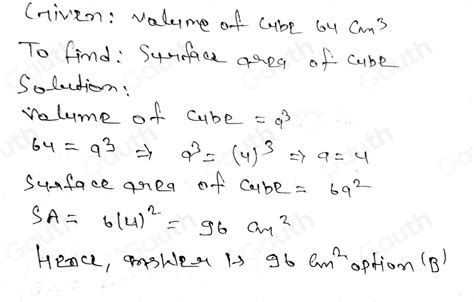 Given: Volume of Cube 64 Cm³
To find: Surface area of cube
Solution:
Volume of Cube = a³
64 = a³ => a³ = (4)³ => a = 4
Surface area of Cube = 6a²
SA = 6(4)² = 96 Cm²
Hence, answer is 96 Cm² option (B)
Gauth
Gauth
Gauth
Gauth